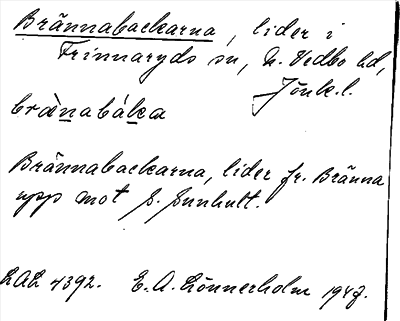 Brännabackarna, lider i
Frinnaryds sn, N. Vedbo hd,
Jönk.l.
brànabáka
Brännabackarna, lider fr. Bränna
upp mot S. Sunhult.
LAL 4392. E. A. Lönnerholm 1947.